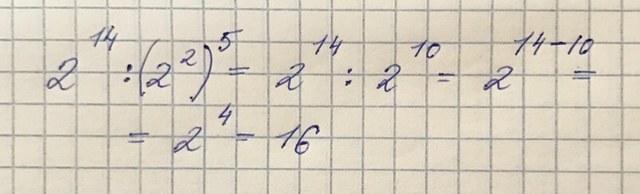 2^14 : (2^2)^5 = 2^14 : 2^10 = 2^14-10 =
= 2^4 = 16